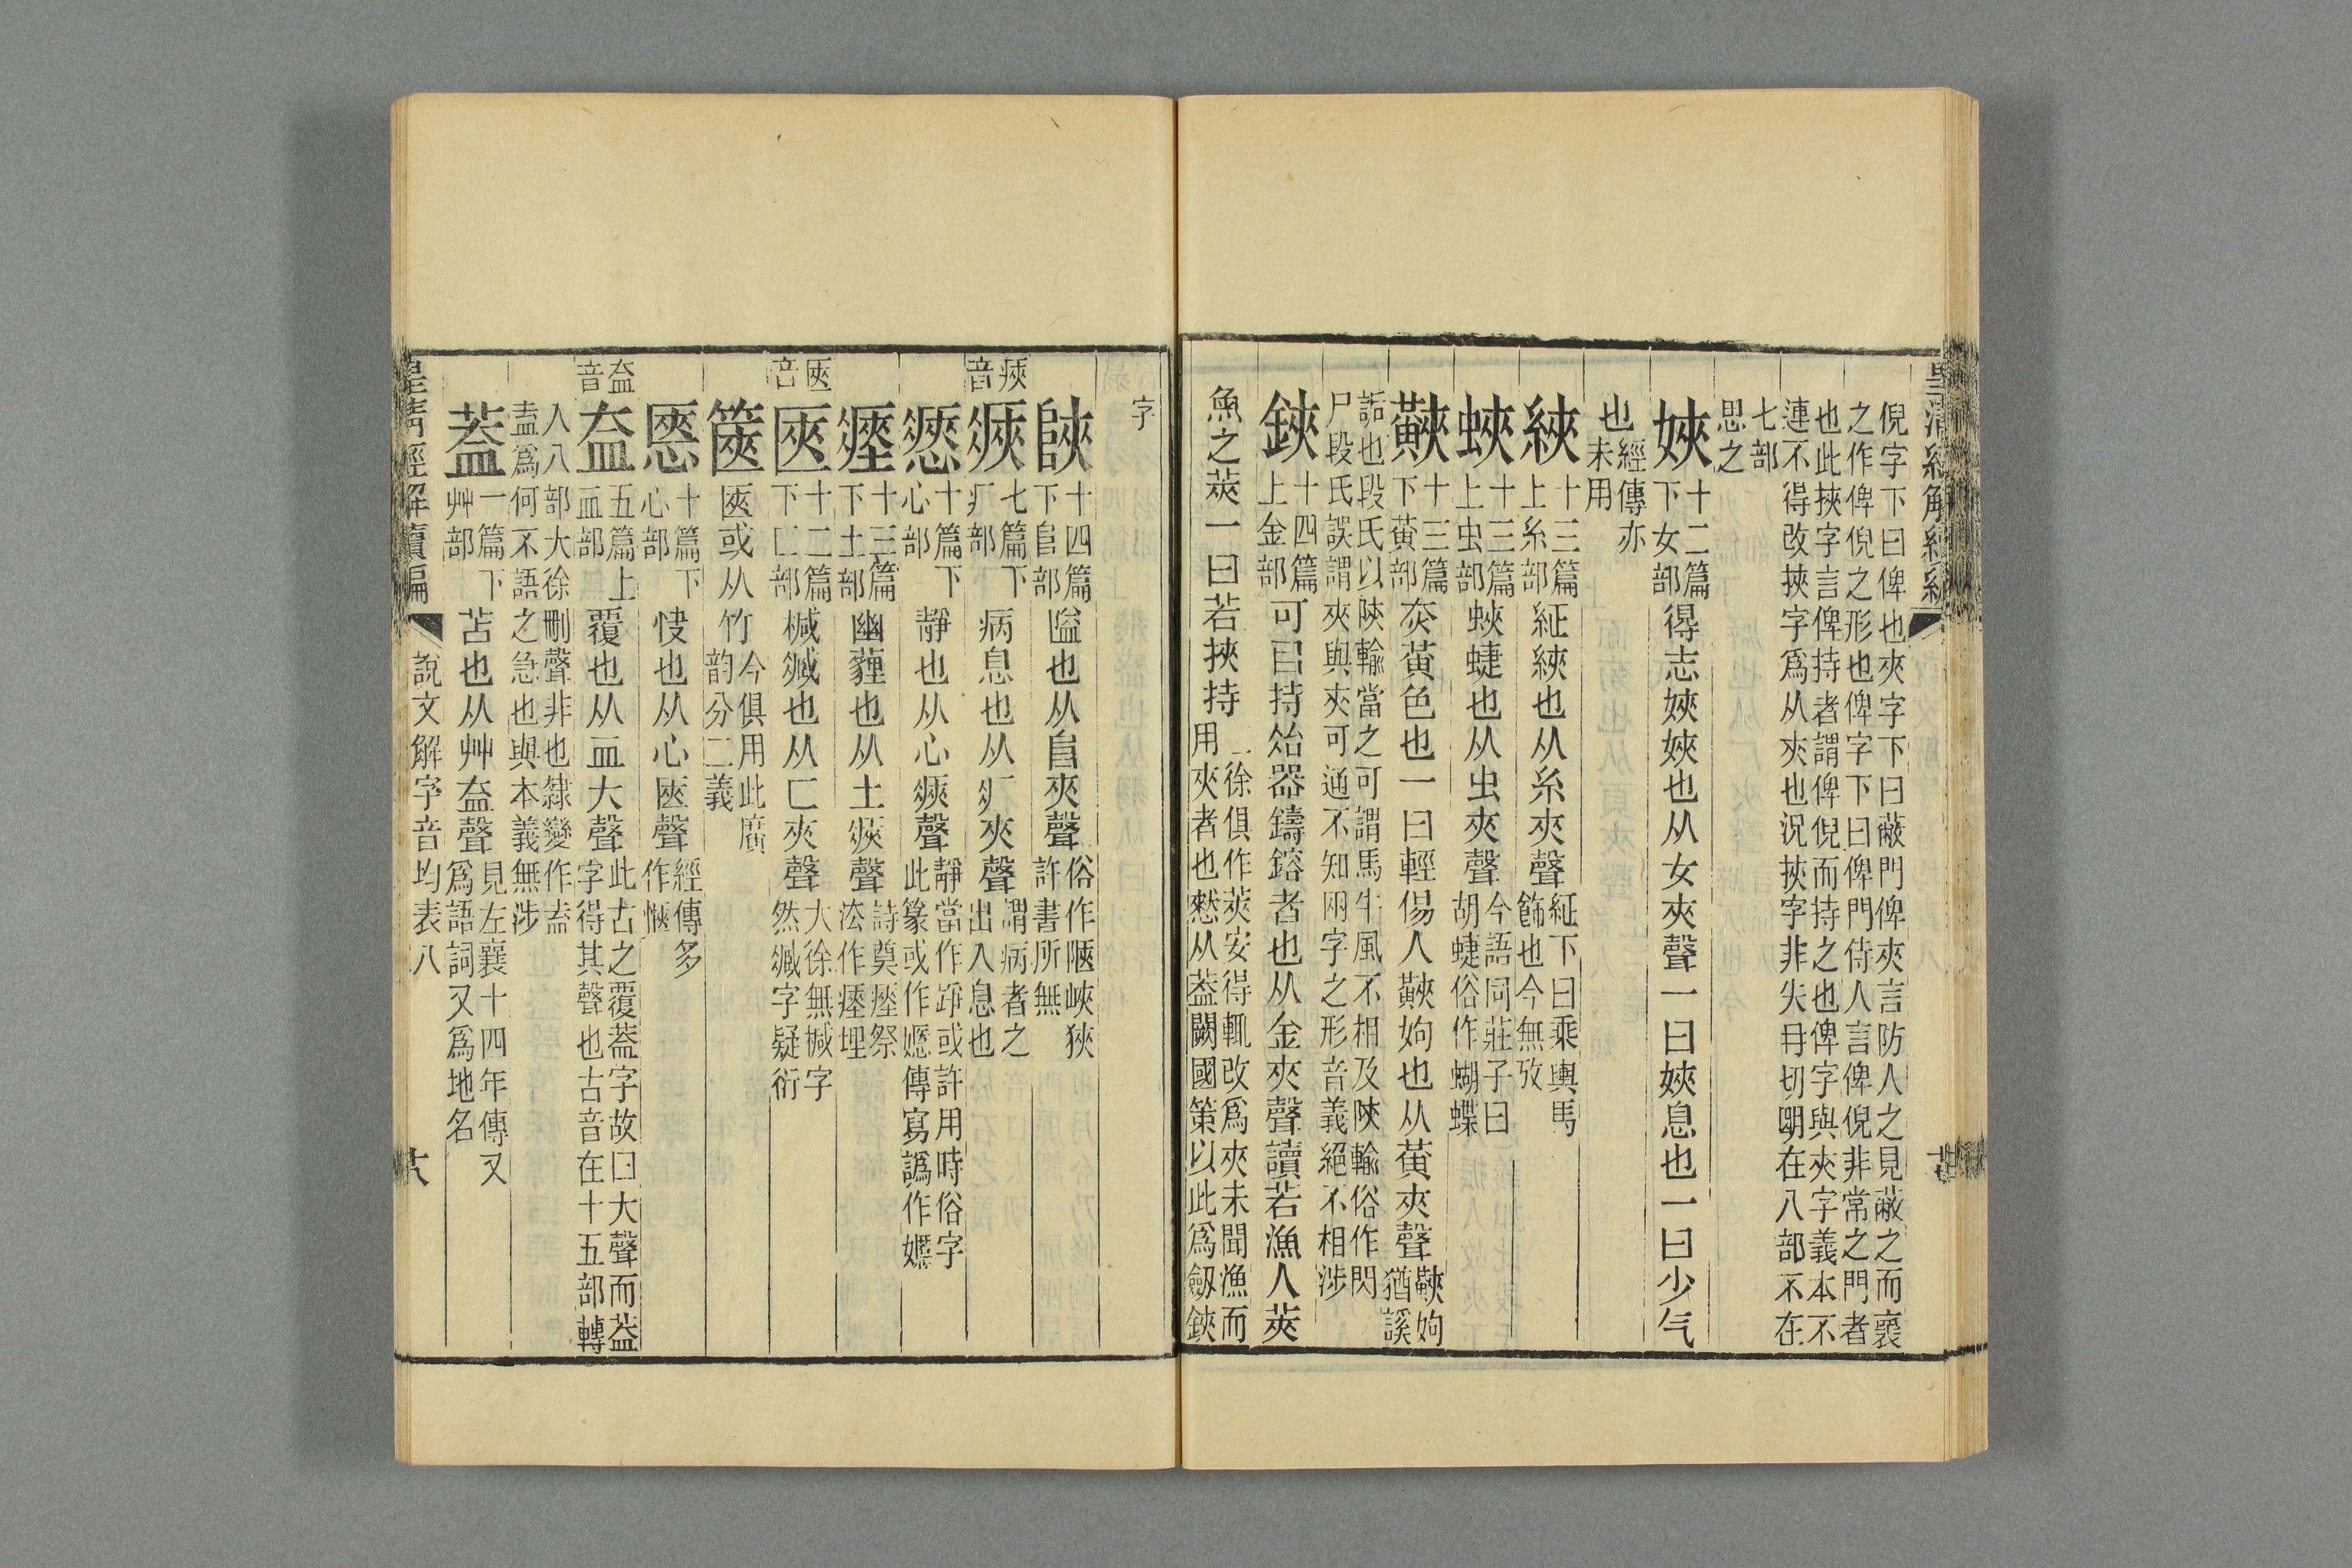 皇清經解續編
倪字下曰俾也夾字下曰蔽門俾夾言防人之見蔽之而褱
之作俾倪之形也俾字下曰俾門侍人言俾倪非常之門者
也此挾字言俾持者謂俾倪而持之也俾字與夾字義本不
連不得改挾字爲从夾也況挾字非失母切明在八部不在
七部
思之
㛍十二篇
下女部得志㛍㛍也从女夾聲一曰㛍息也一曰少气
也經傳亦
未用
綊十三篇
上糸部紝綊也从糸夾聲紝下曰乘輿馬
飾也今無攷
蛺十三篇
上虫部蛺蜨也从虫夾聲今語同莊子曰
胡蜨俗作蝴蝶
䵌十三篇
下黃部灰黃色也一曰輕傷人䵌姁也从黃夾聲䵌姁
猶謑
詬也段氏以陜輸當之可謂馬牛風不相及陜輸俗作閃
尸段氏誤謂夾與夾可通不知兩字之形音義絕不相涉
鋏十四篇
上金部可㠯持冶器鑄鎔者也从金夾聲讀若漁人莢
魚之莢一曰若挾持二徐俱作莢安得輒改爲夾未聞漁而
用夾者也懋从葢闕國策以此爲劔鋏
字
陜十四篇
下𨸏部隘也从𨸏夾聲俗作陿峽狹
許書所無
瘱音
㾜七篇下
疒部病息也从疒夾聲謂病者之
出入息也
瘱十篇下
心部靜也从心㾜聲靜當作竫或許用時俗字
此篆或作嫕傳寫譌作㜝
㙪十三篇
下土部幽薶也从土㾜聲詩奠瘞祭
法作瘞埋
匧音
匧十二篇
下匚部椷𧖌也从匚夾聲大徐無椷字
然𧖌字疑衍
篋匧或从竹今俱用此廣
韵分二義
㥦十篇下
心部㤲也从心匧聲經傳多
作愜
盇音
盇五篇上
血部覆也从血大聲此古之覆葢字故曰大聲而葢
字得其聲也古音在十五部轉
入八部大徐刪聲非也隸變作盍
盍爲何不語之急也與本義無涉
葢一篇下
艸部苫也从艸盇聲見左襄十四年傳又
爲語詞又爲地名
皇清經解續編
說文解字音均表八
六